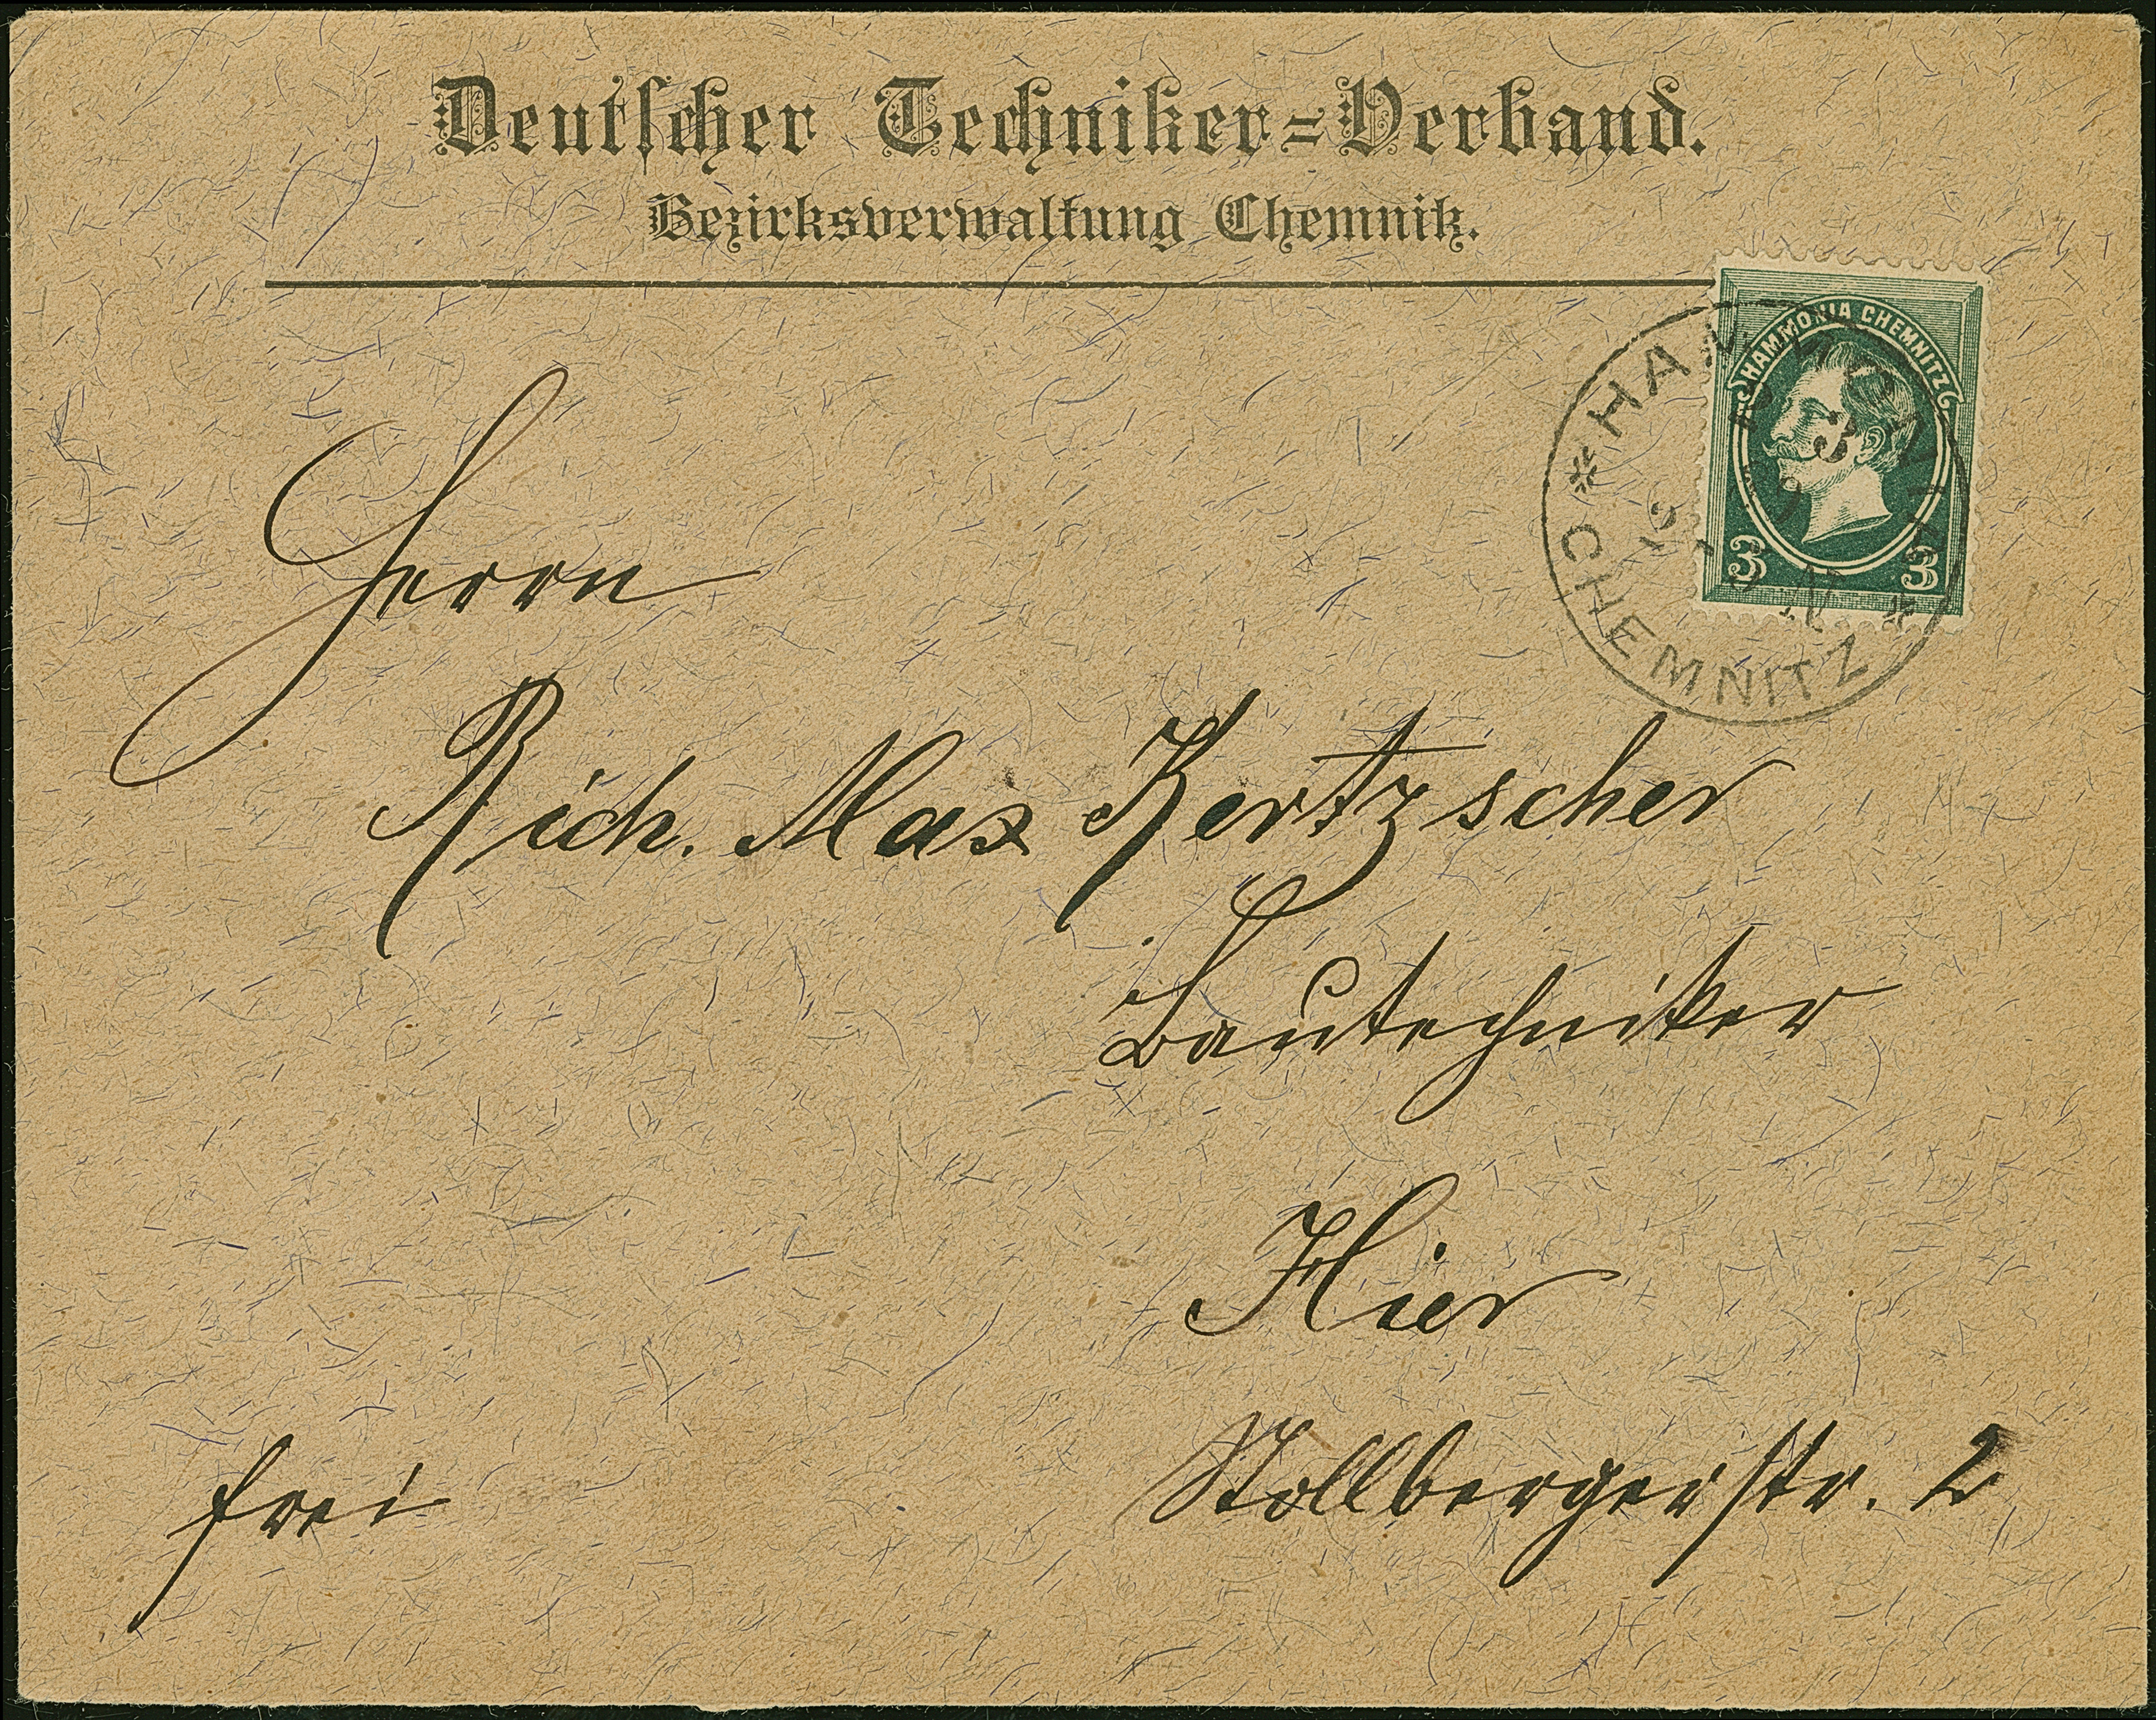 Deutscher Techniker=Verband.
Bezirksverwaltung Chemnitz.
HAMMONIA CHEMNITZ
3 3
* HAMMONIA *
CHEMNITZ
Herrn
Rich. Max Kertzscher
Bautechniker
Hier
frei
Stollbergerstr. 2